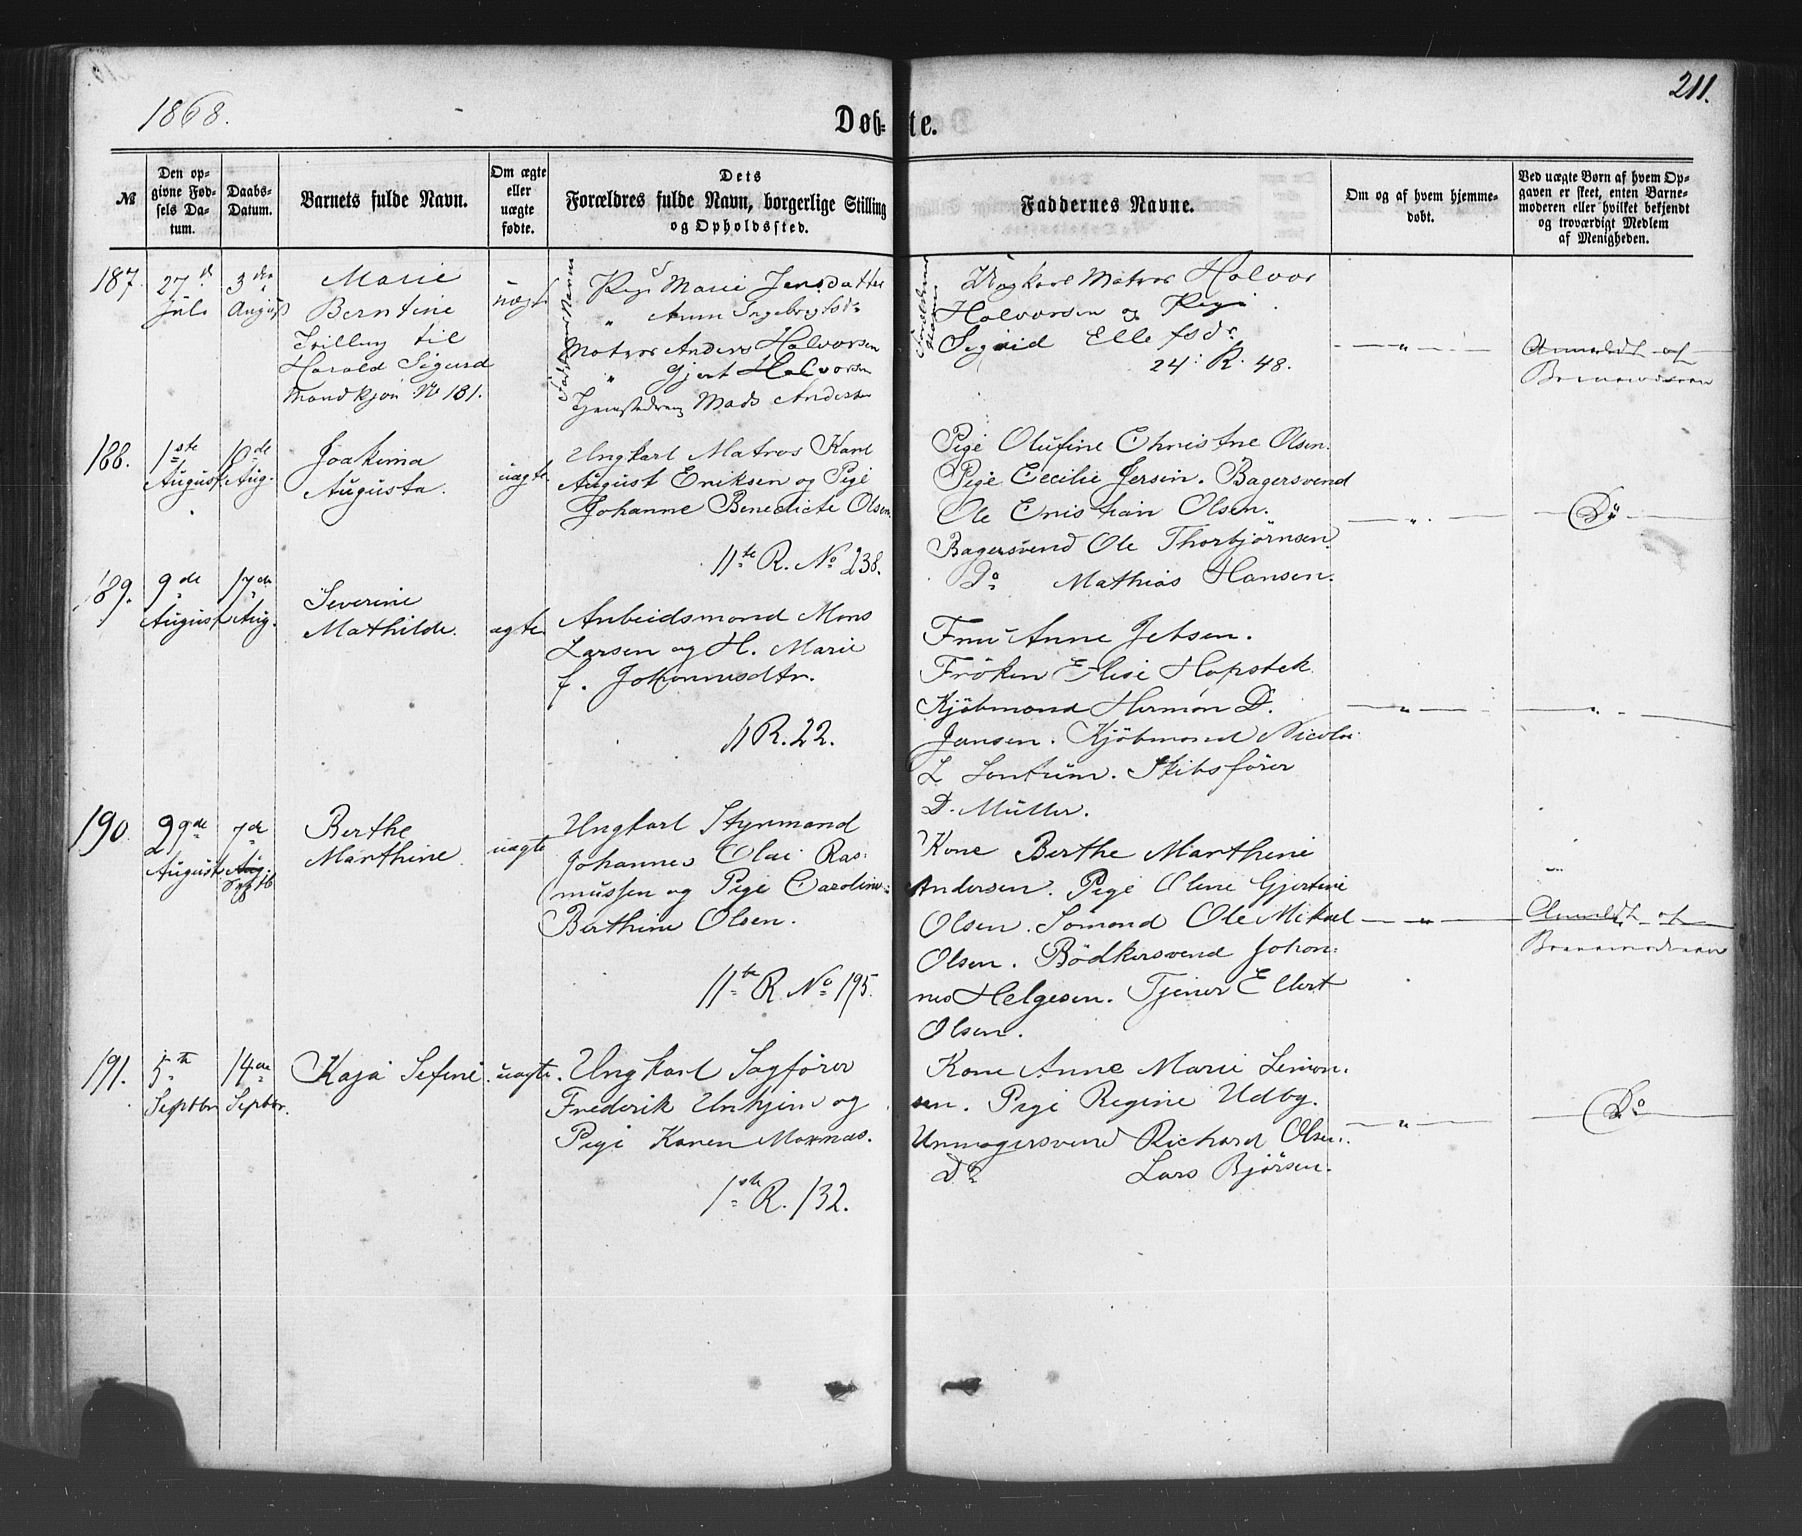 1868.
Døbte.
211.
№
Den opgivne Fødsels Datum.
Daabs-Datum.
Barnets fulde Navn.
Om ægte eller uægte fødte.
Dets Forældres fulde Navn, borgerlige Stilling og Opholdssted.
Faddernes Navne.
Om og af hvem hjemmedøbt.
Ved uægte Børn af hvem Opgaven er skeet, enten Barnemoderen eller hvilket bekjendt og troværdigt Medlem af Menigheden.
187.
27d
Juli
3die
August
Marie
Berntine
Tvilling til
Harald Sigurd
No 181.
uægte
Marie Jensdatter
" Anna Ingebrigtsdr
Matros Anders Halvorsen
" Gjert Halvorsen
Mads Andersen
Ungkarl Matros Halvor
Halvorsen og Pige
Sigrid
24: R. 48.
— " —
Anmeldt af
Barnemoderen
188.
1ste
August
10de
Aug.
Joakima
Augusta.
uægte
Ungkarl Matros Karl
August Eriksen og Pige
Johanne Benedicte Olsen.
11te R. No 238.
Pige Olufine Christne Olsen.
Pige Cecilie Jersin. Bagersvend
Ole Cristian Olsen.
Bagersvend Ole Thorbjørnsen.
Do Mathias Hansen.
— " —
Do
189.
9de
August
17de
Aug.
Severine
Mathilde.
ægte
Arbeidsmand Mons
Larsen og H. Marie
f. Johannesdtr.
11 R. 22.
Fru Anne Jebsen.
Frøken Elise Hopstok
Kjøbmand Herman D.
Jansen. Kjøbmand Nicolai
L Sontum. Skibsfører
D. Müller.
— " —
— " —
190.
29de
August
7de
Aug.
Septb
Berthe
Marthine
uægte
Ungkarl Styrmand
Johannes Olai Ras-
mussen og Pige Caroline
Berthine Olsen.
11te R. No 195.
Kone Berthe Marthine
Andersen. Pige Oline Gjertine
Olsen. Sømand Ole Mikal
Olsen. Bødkersvend Johan-
nes Helgesen. Tjener Ellert
Olsen.
— " —
Anmeldt af
Barnemoderen
191.
5te
Septbr
14de
Septbr.
Kaja Sefine
uægte.
Ungkarl Sagfører
Frederik og
Pige Karen
1ste R. 132.
Kone Anne Marie Simon-
sen. Pige Regine Udby.
Urmagersvend Richard Olsen.
Do Lars Bjørsen.
— " —
Do